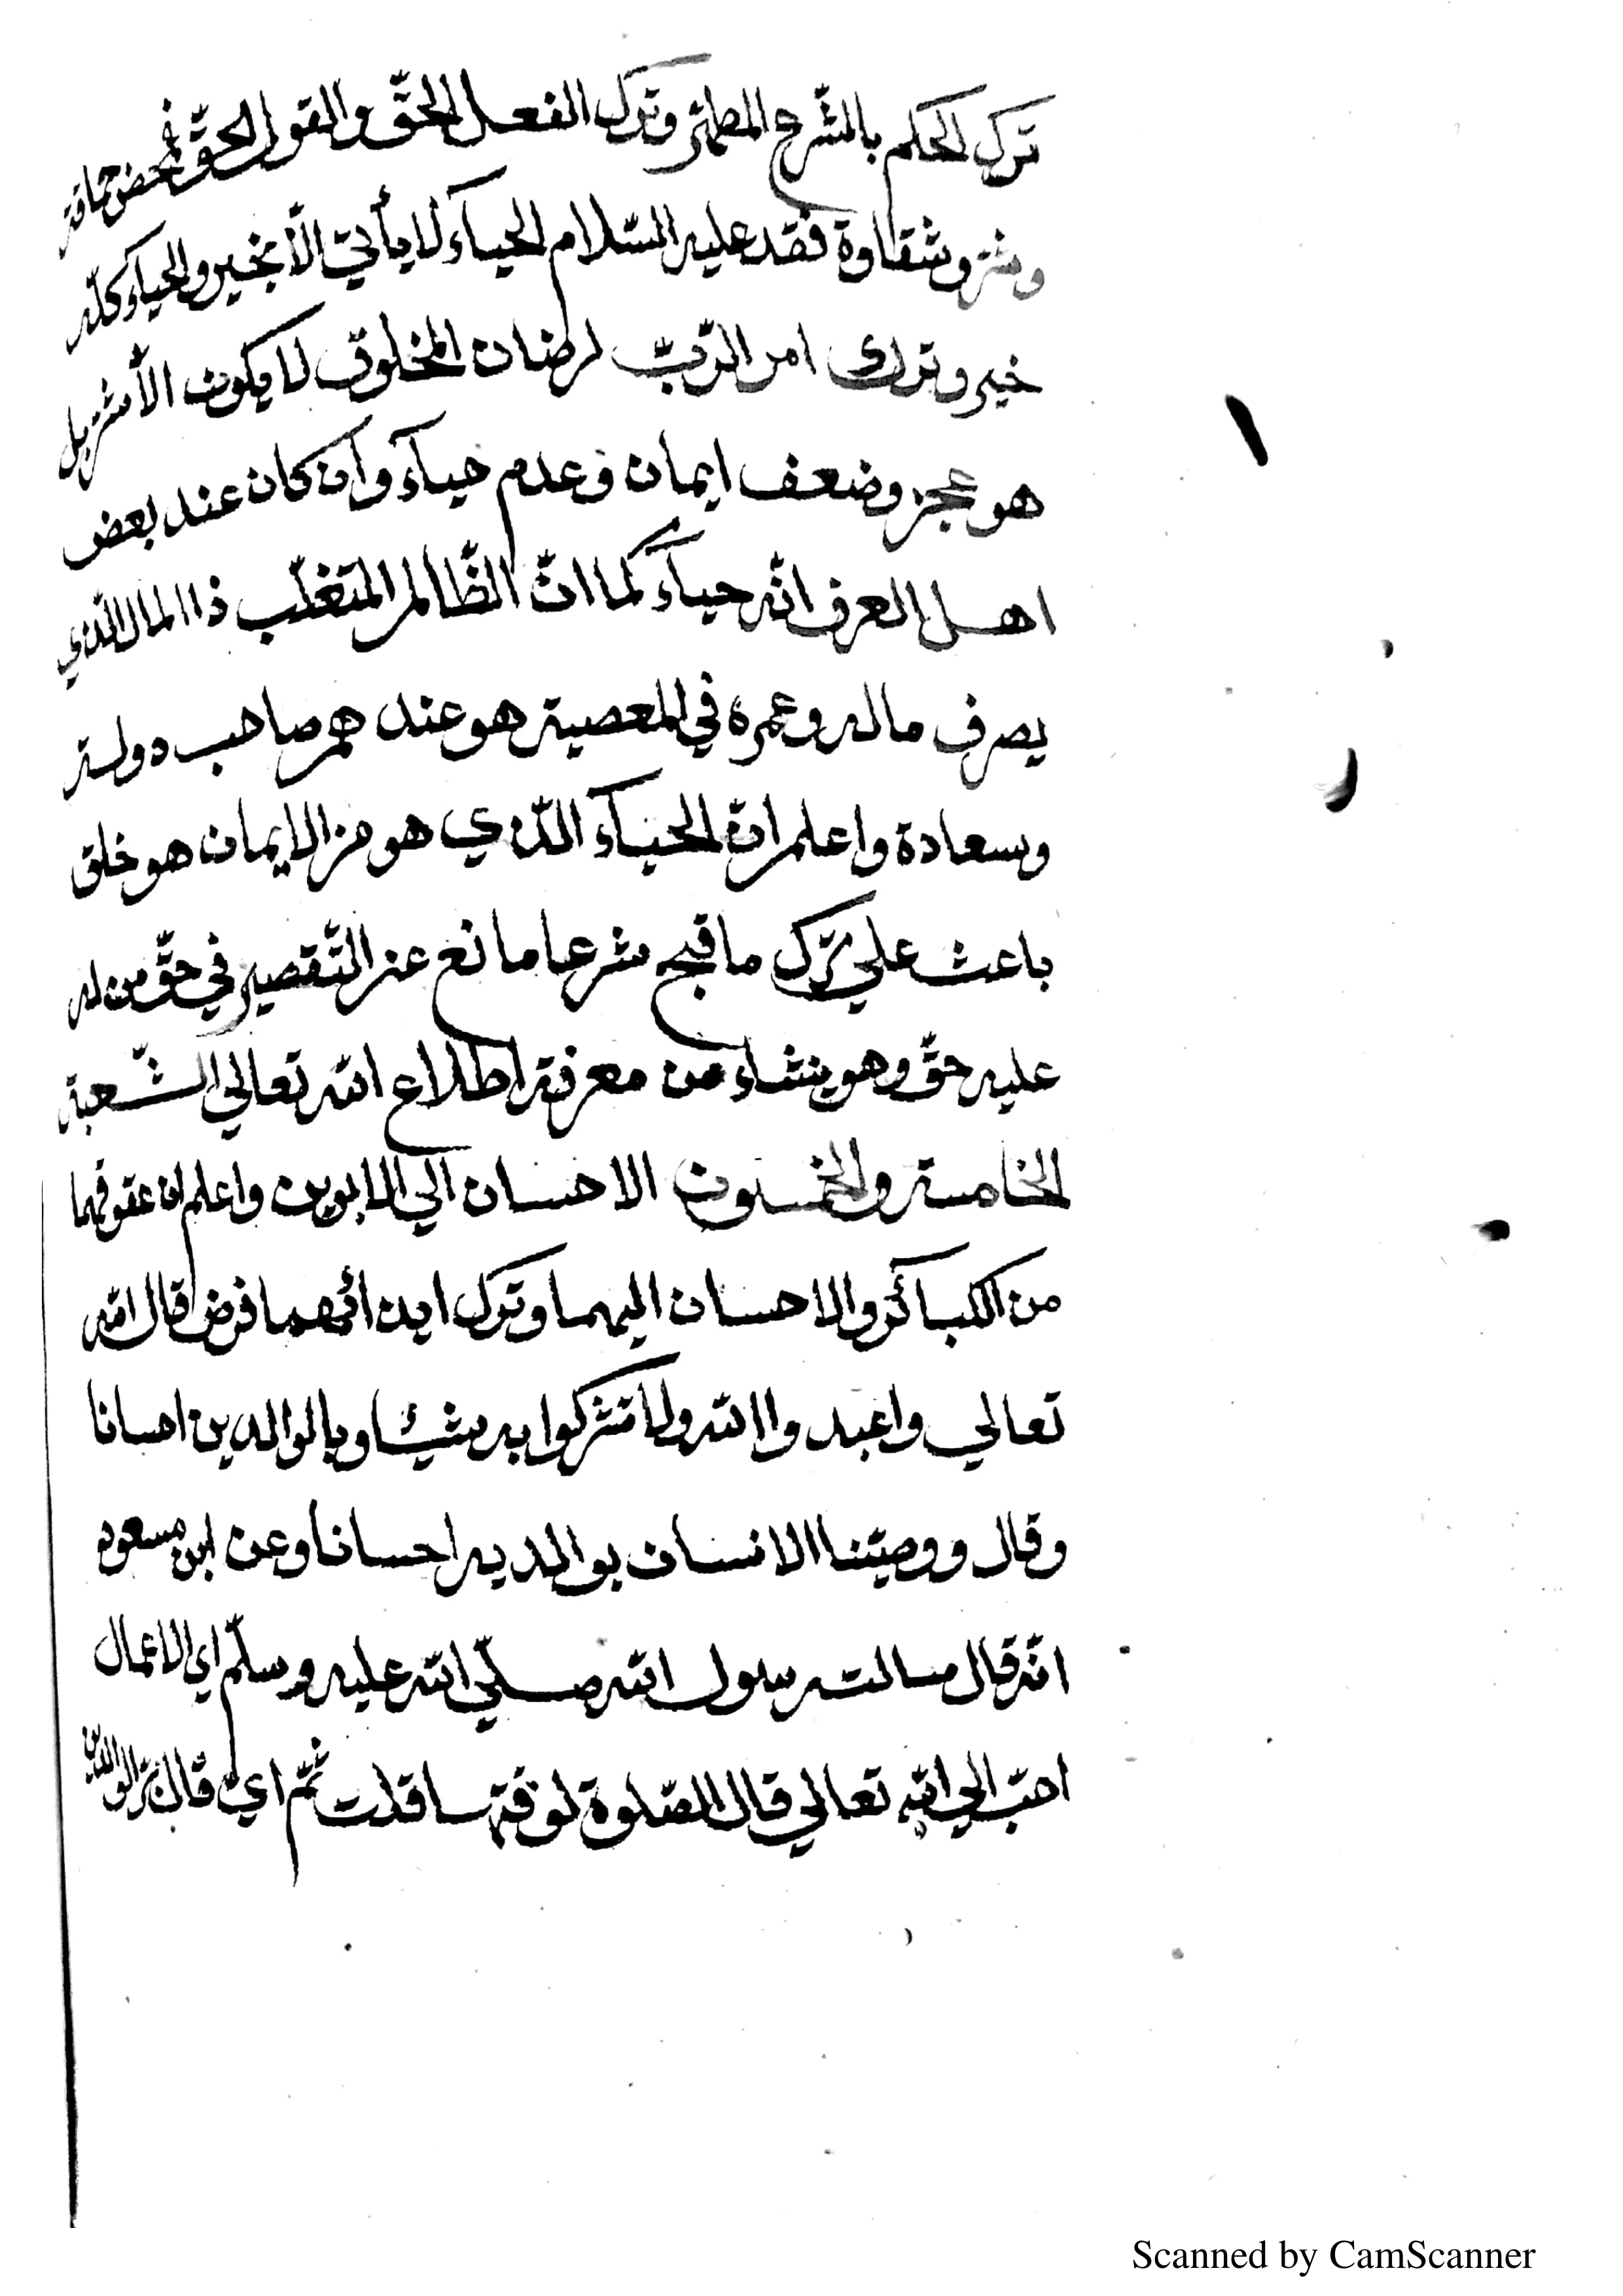 ترك الحكم بالشرع المطهر وترك الفعل الحق والقول الحق محض حماقة
وشر وشقاوة فقد عليه السّلام الحياء لا يأتي الّا بخير والحياء كلّه
خير وترك امر الرّبّ لرضاء المخلوق لا يكون الّا شر بل
هو عجز وضعف ايمان وعدم حياء وان كان عند بعض
اهل العرف انّه حياء كما انّ الظّالم المتغلّب ذا المال الّذي
يصرف ماله وعمره في المعصية هو عندهم صاحب دولة
وسعادة واعلم انّ الحياء الّذي هو من الايمان هو خلق
باعث علي ترك ما قبح شرعا مانع عن التّقصير في حقّ من له
عليه حقّ وهو ينشاء من معرفة اطلاع الله تعالي الشّعبة
الخامسة والخمسون الاحسان الي الابوين واعلم ان عقوقهما
من الكبائر والاحسان اليهما وترك ايذائهما فرض قال الله
تعالي واعبدوا الله ولا تشركوا به شيئا وبالوالدين احسانا
وقال ووصّينا الانسان بوالديه احسانا وعن ابن مسعود
انّه قال سالت رسول الله صلّي الله عليه وسلّم اي الاعمال
احبّ الي الله تعالي قال الصّلوة لوقتها قلت ثمّ اي قال برّ الوالدين
Scanned by CamScanner